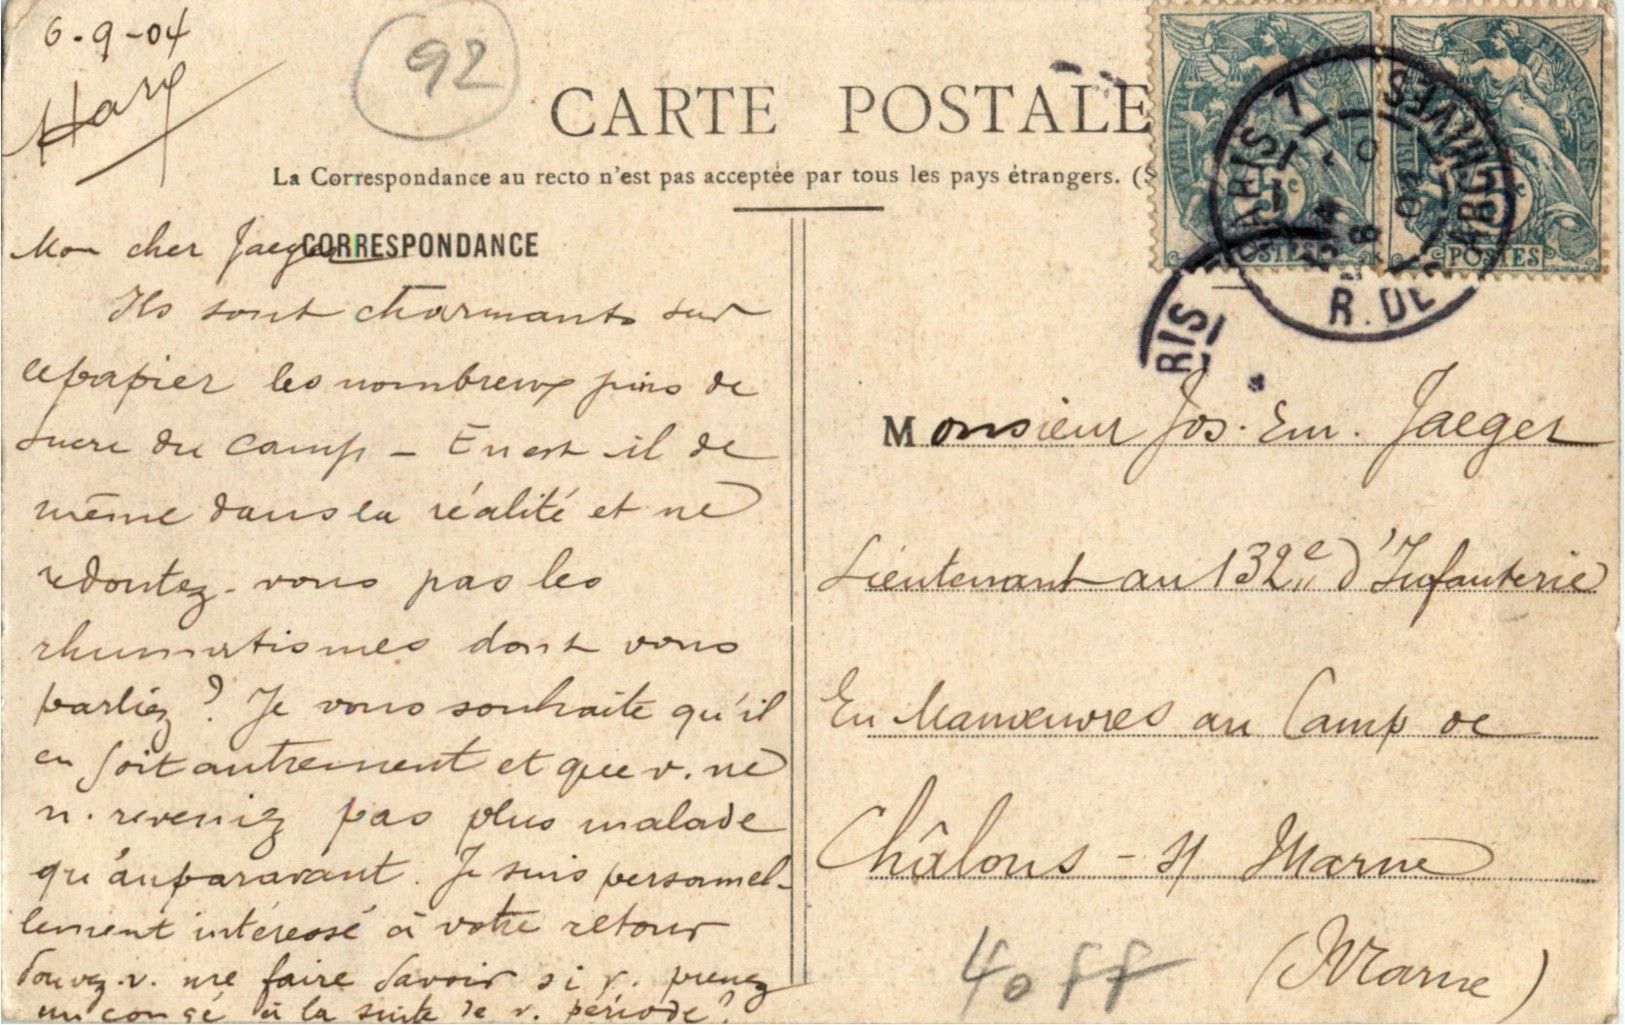 6-9-04
Hary
92
CARTE POSTALE
La Correspondance au recto n'est pas acceptée par tous les pays étrangers. (S
CORRESPONDANCE
Mon cher Jaeger
Ils sont charmants sur
le papier les nombreux pins de
sucre du camp – En est-il de
même dans la réalité et ne
redoutez-vous pas les
rhumatismes dont vous
parliez ? Je vous souhaite qu'il
en soit autrement et que v. ne
n. reveniez pas plus malade
qu'auparavant. Je suis personnel-
lement intéressé à votre retour
Pouvez-v. me faire savoir si v. prenez
un congé à la suite de v. période ?
POSTES
POSTES
PARIS 7
ARCHIVES
R. DES
RIS
Monsieur Jos. Em. Jaeger
Lieutenant au 132e d'Infanterie
En Manœuvres au Camp de
Châlons - s/ Marne
(Marne)
40 ff